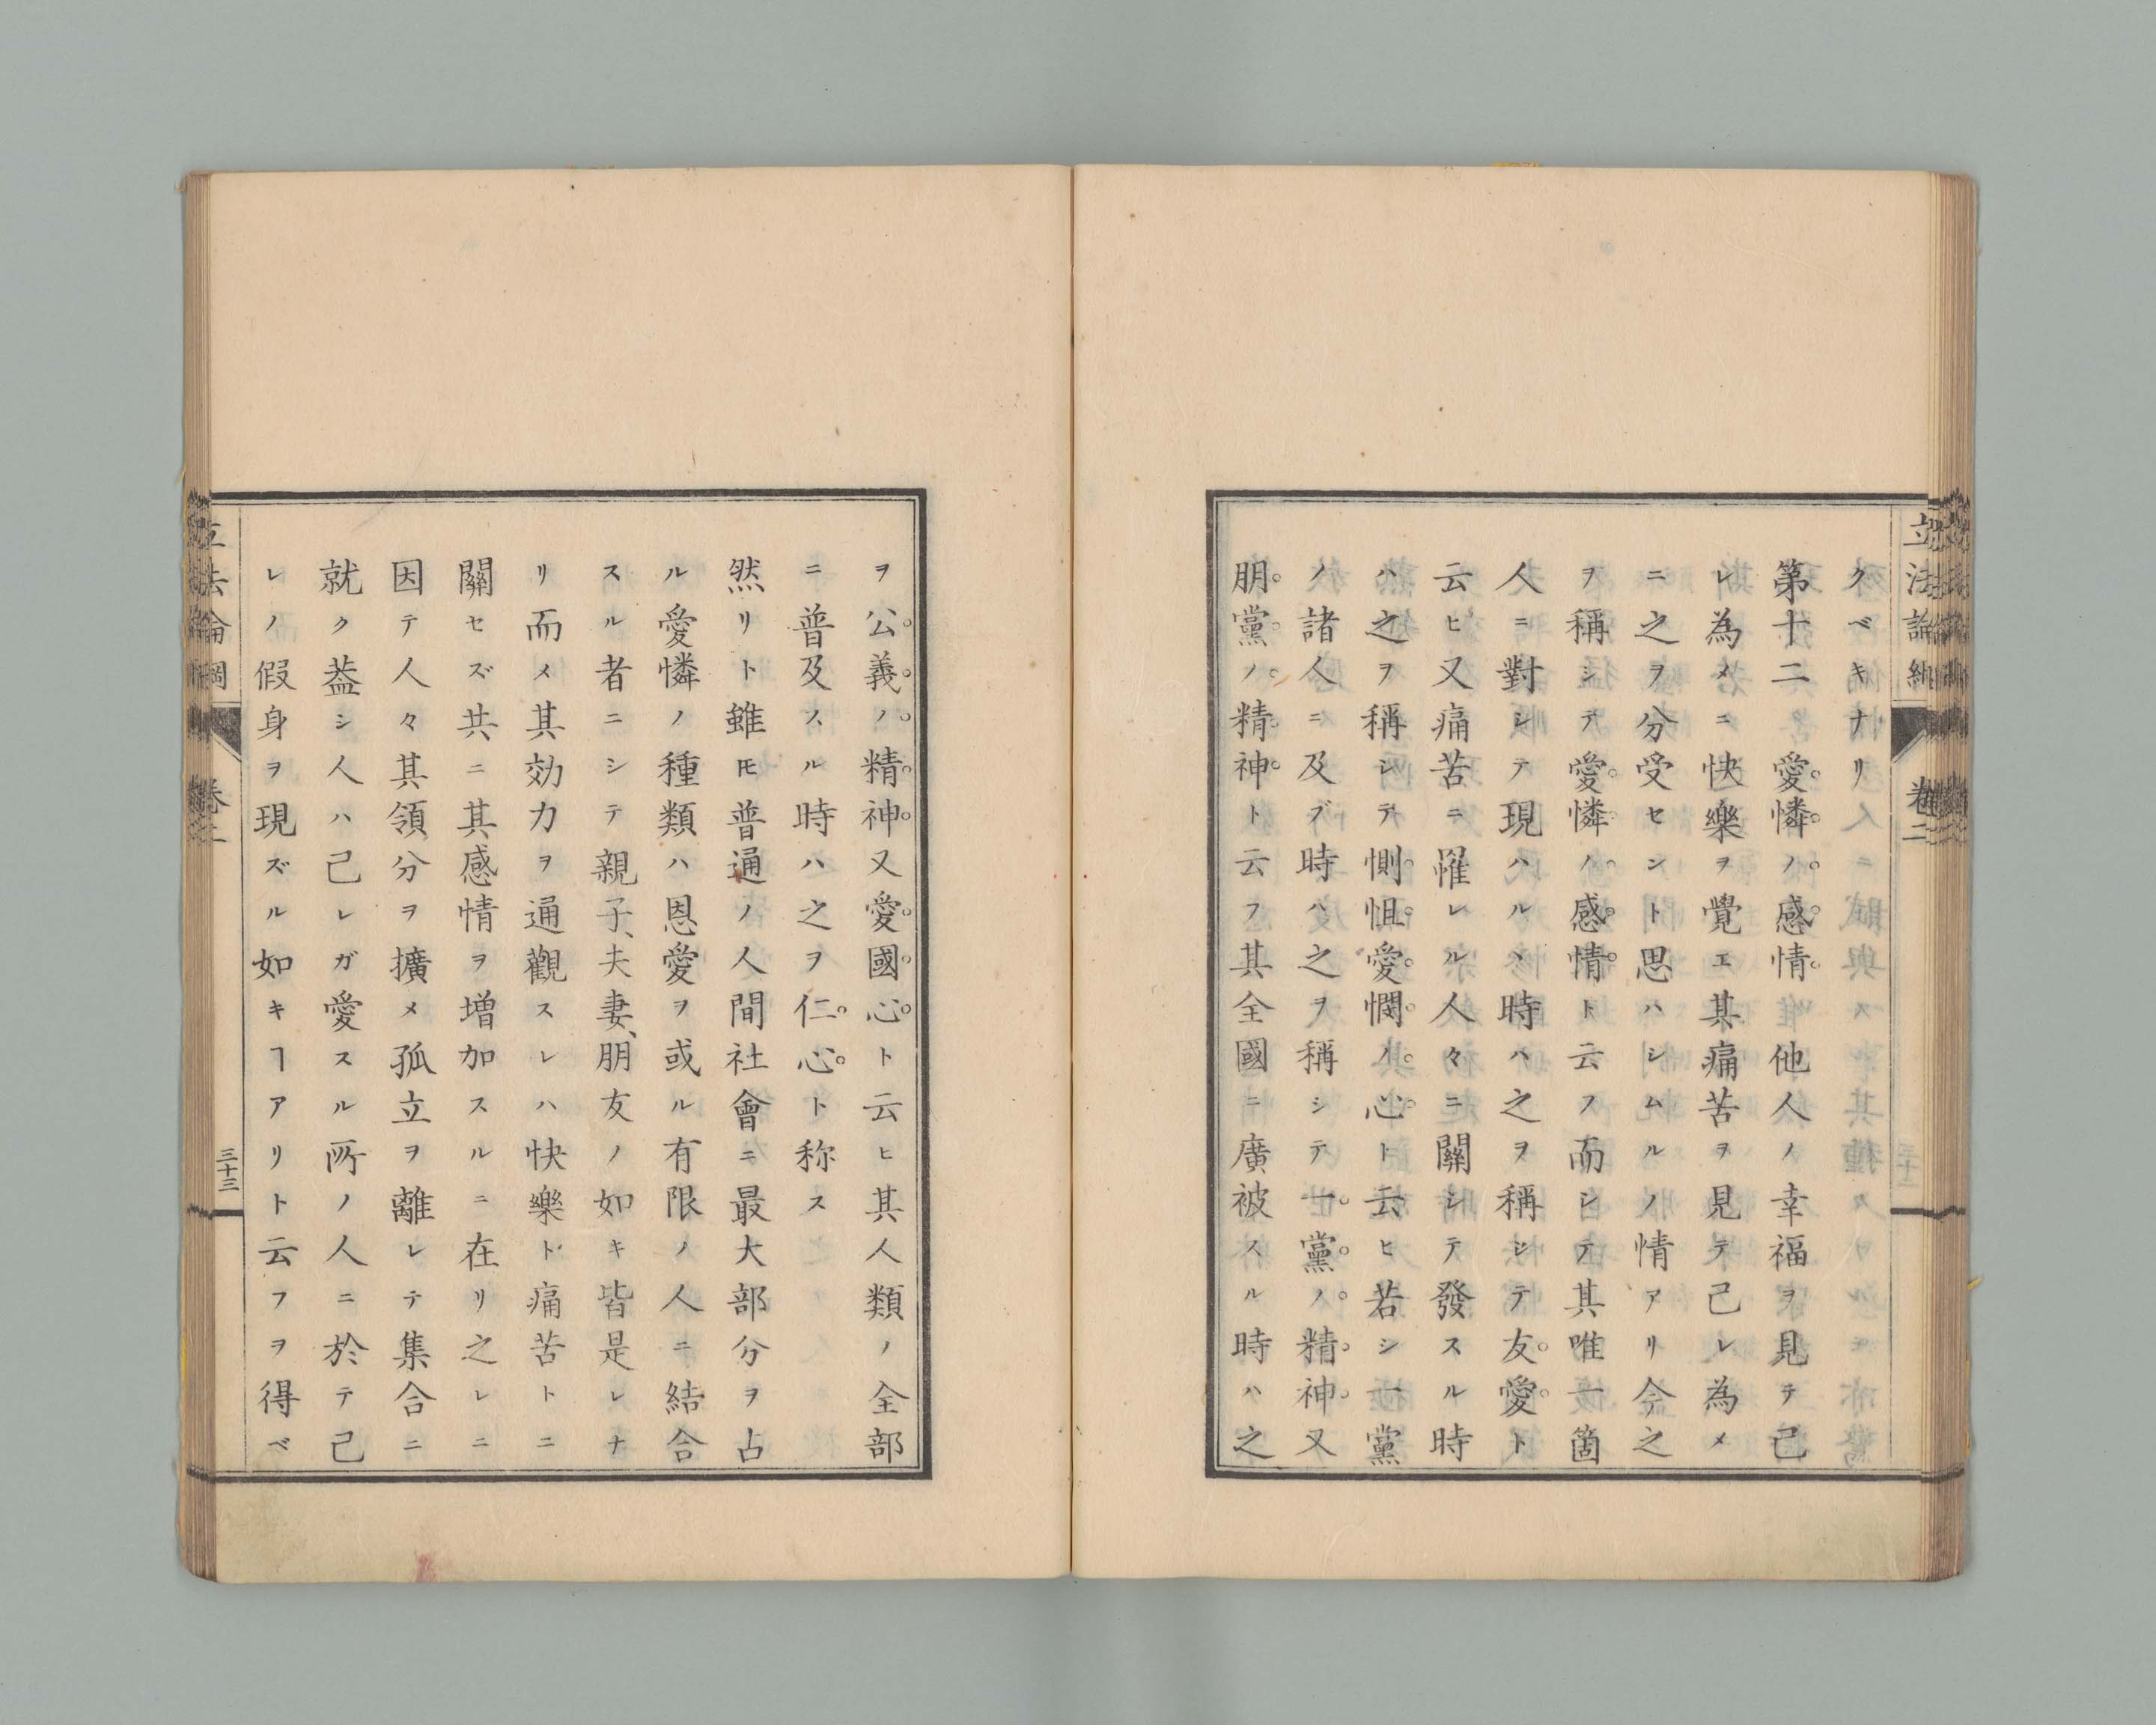 立法論綱 卷二
クベキナリ
第十二 愛憐ノ感情 他人ノ幸福ヲ見テ己
レ為メニ快樂ヲ覺エ其痛苦ヲ見テ己レ為メ
ニ之ヲ分受セント思ハシムルノ情アリ今之
ヲ稱シテ愛憐ノ感情ト云フ而シテ其唯一箇
人ニ對シテ現ハルヽ時ハ之ヲ稱シテ友愛ト
云ヒ又痛苦ニ罹レル人々ニ關シテ發スル時
ハ之ヲ稱シテ惻怛愛憫ノ心ト云ヒ若シ一黨
ノ諸人ニ及ブ時ハ之ヲ稱シテ一黨ノ精神又
朋黨ノ精神ト云フ其全國ニ廣被スル時ハ之
ヲ公義ノ精神又愛國心ト云ヒ其人類ノ全部
ニ普及スル時ハ之ヲ仁心ト称ス
然リト雖𪜈普通ノ人間社會ニ最大部分ヲ占
ル愛憐ノ種類ハ恩愛ヲ或ル有限ノ人ニ結合
スル者ニシテ親子、夫妻、朋友ノ如キ皆是レナ
リ而メ其効力ヲ通觀スレハ快樂ト痛苦トニ
關セズ共ニ其感情ヲ増加スルニ在リ之レニ
因テ人々其領分ヲ擴メ孤立ヲ離レテ集合ニ
就ク葢シ人ハ己レガ愛スル所ノ人ニ於テ己
レノ假身ヲ現ズル如キヿアリト云フヲ得ベ
立法論綱 卷二 三十三